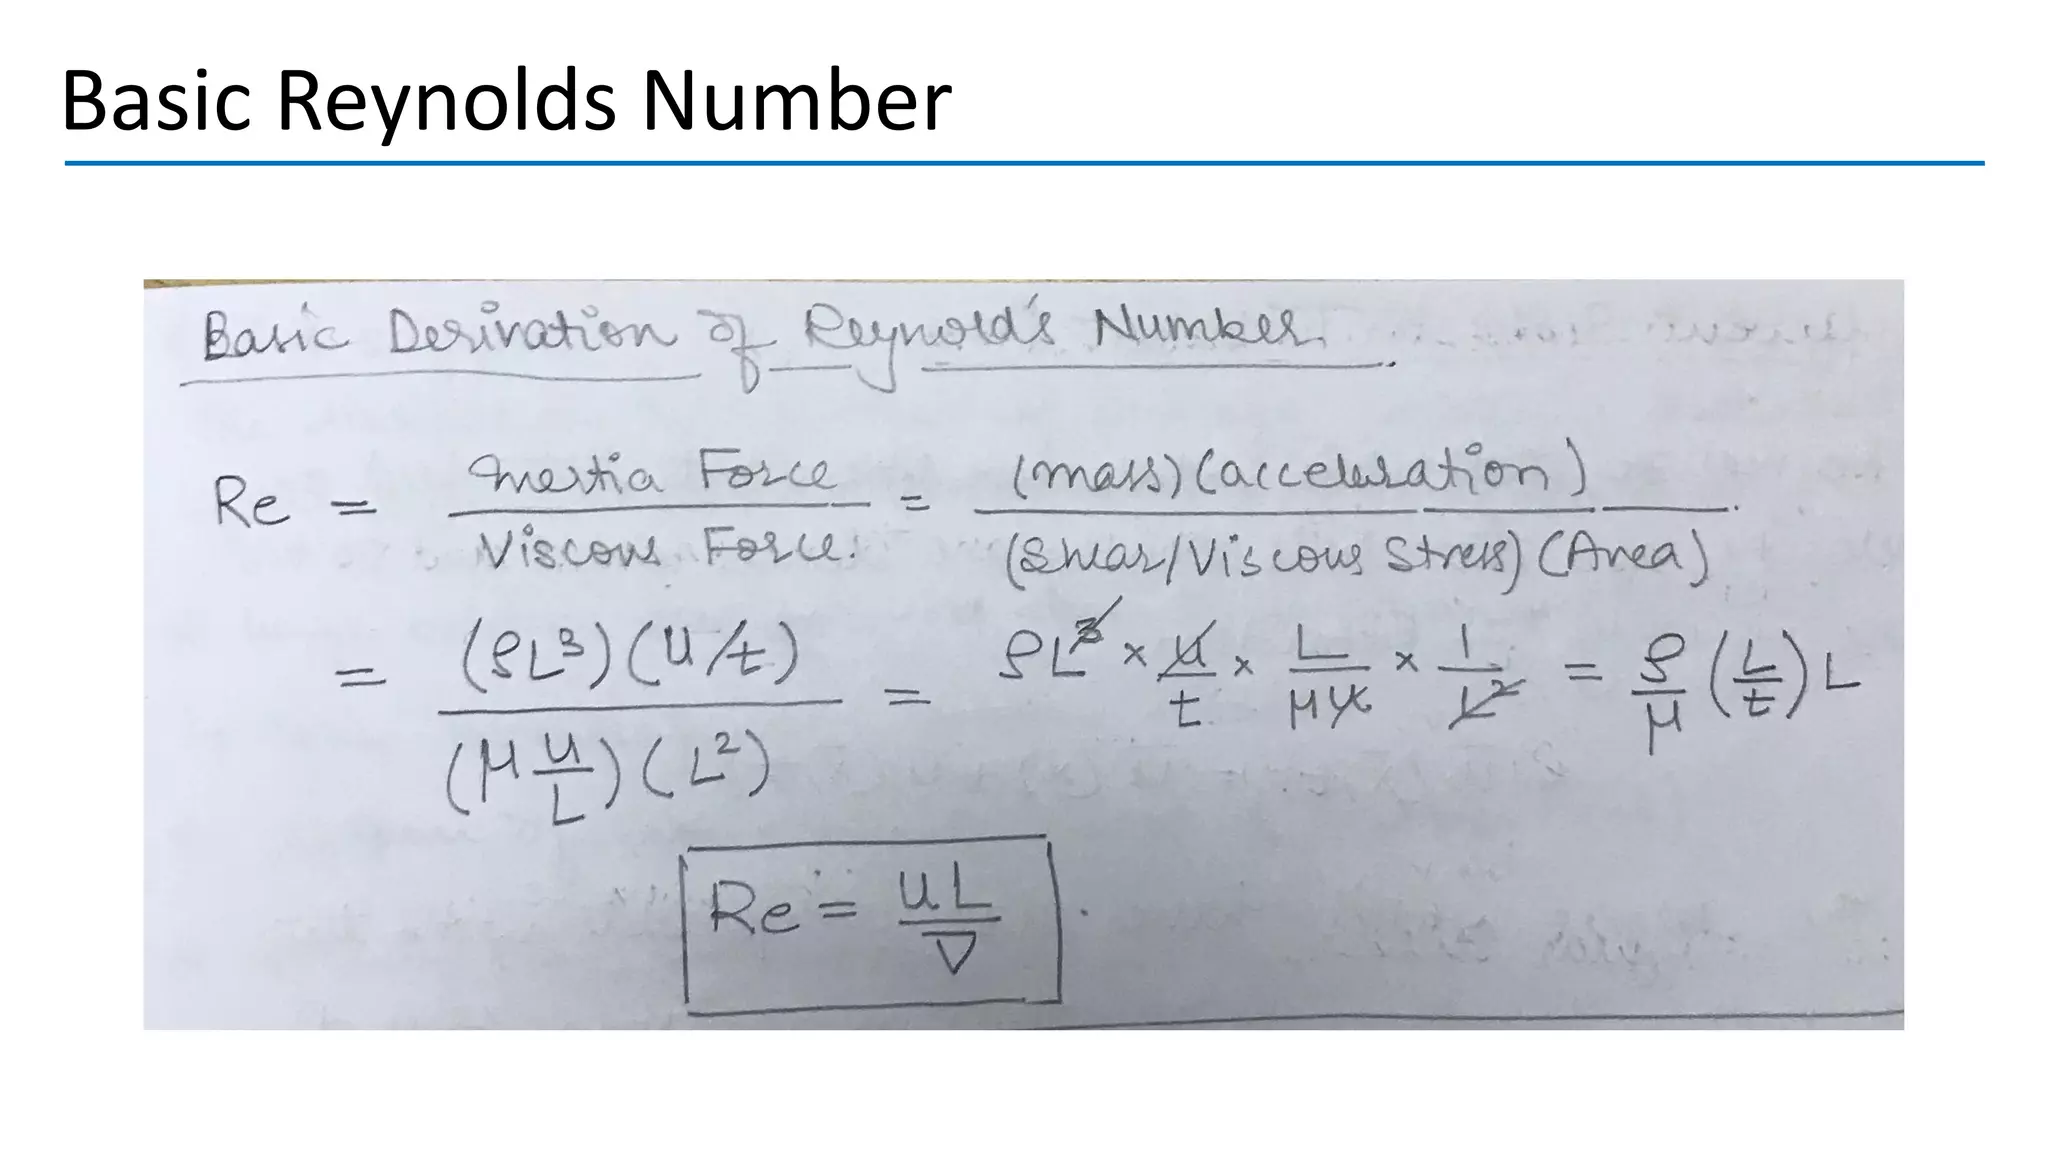 Basic Reynolds Number
Basic Derivation of Reynold's Number.
Re = Inertia Force / Viscous Force. = (mass) (acceleration) / (Shear/Viscous Stress) (Area)
= (ρL³) (u/t) / (μ u/L) (L²) = ρL³ × u/t × L/μu × 1/L² = ρ/μ (L/t) L
Re = uL/∇.